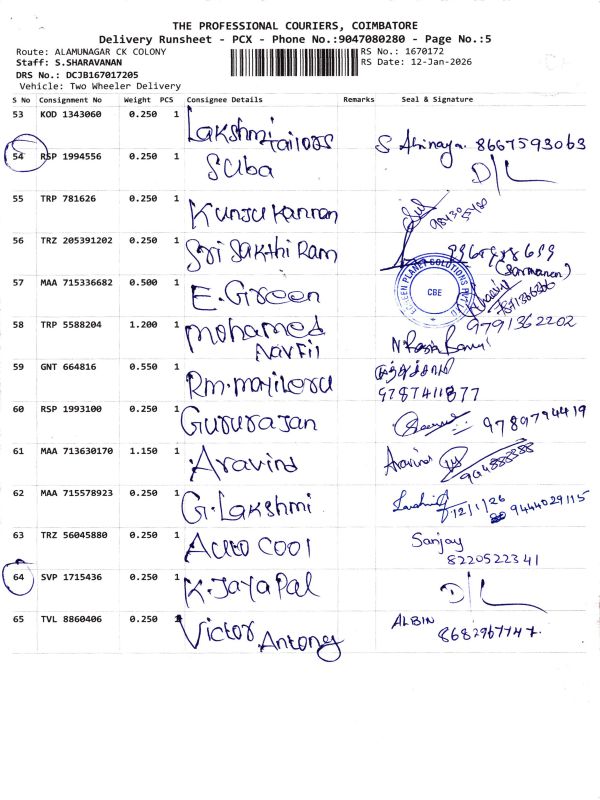 THE PROFESSIONAL COURIERS, COIMBATORE
Delivery Runsheet - PCX - Phone No.:9047080280 - Page No.:5
Route: ALAMUNAGAR CK COLONY RS No.: 1670172
Staff: S.SHARAVANAN RS Date: 12-Jan-2026
DRS No.: DCJB167017205
Vehicle: Two Wheeler Delivery
S No Consignment No Weight PCS Consignee Details Remarks Seal & Signature
53 KOD 1343060 0.250 1 Lakshmi tailors S Abinaya 8667593063
54 RSP 1994556 0.250 1 Suba D/L
55 TRP 781626 0.250 1 Kunju kannan
56 TRZ 205391202 0.250 1 Sri Sakthi Ram
57 MAA 715336682 0.500 1 E.Green CBE
58 TRP 5588204 1.200 1 mohamed Navfil 9791362202
59 GNT 664816 0.550 1 9787411877
60 RSP 1993100 0.250 1 Gururajan 9789794419
61 MAA 713630170 1.150 1 Aravind Aravind
62 MAA 715578923 0.250 1 G.Lakshmi 12/1/26 9444029115
63 TRZ 56045880 0.250 1 Auto cool Sanjay 8220522341
64 SVP 1715436 0.250 1 K.Jaya pal D/L
65 TVL 8860406 0.250 1 Victor Antony ALBIN 8682967747.